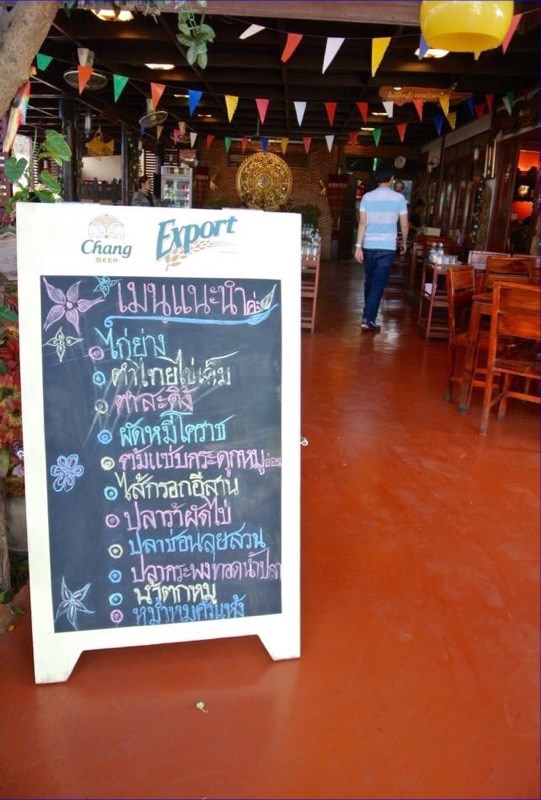 Chang
BEER
Export
เมนูแนะนำค่ะ
ไก่ย่าง
ตำไทยไข่เค็ม
ผัดหมี่โคราช
ต้มแซ่บกระดูกหมูอ่อน
ไส้กรอกอีสาน
ปลาร้าผัดไข่
ปลาช่อนลุยสวน
ปลากระพงทอดน้ำปลา
น้ำตกหมู